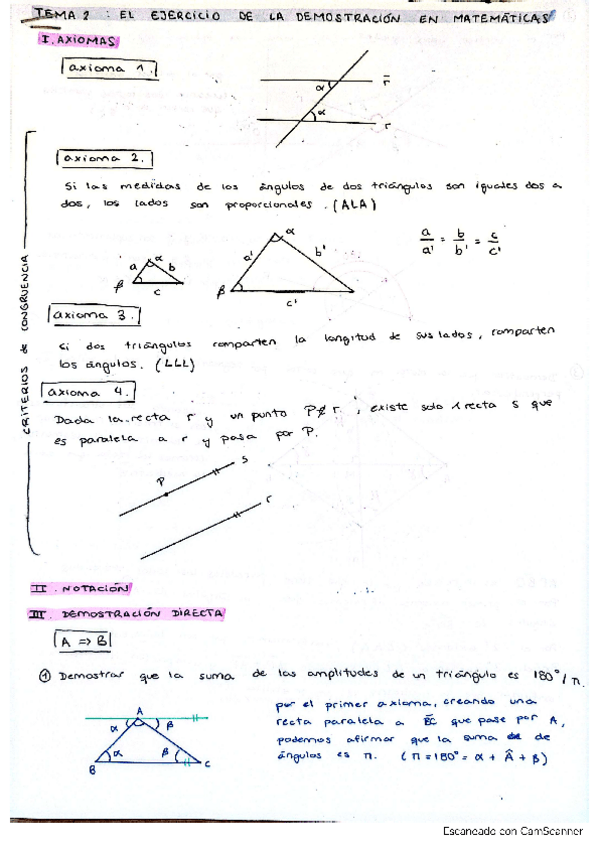 TEMA 2 : EL EJERCICIO DE LA DEMOSTRACIÓN EN MATEMÁTICAS
I. AXIOMAS
axioma 1.
α r̄
α r
axioma 2.
Si las medidas de los ángulos de dos triángulos son iguales dos a
dos, los lados son proporcionales. (ALA)
a α b β c
a' α b' β c'
a/a' = b/b' = c/c'
CRITERIOS de CONGRUENCIA
axioma 3.
Si dos triángulos comparten la longitud de sus lados, comparten
los ángulos. (LLL)
axioma 4.
Dada la recta r y un punto P∉r, existe solo 1 recta s que
es paralela a r y pasa por P.
P s
r
II. NOTACIÓN
III. DEMOSTRACIÓN DIRECTA
A => B
① Demostrar que la suma de las amplitudes de un triángulo es 180°/π.
A
α β
α β
B C
por el primer axioma, creando una
recta paralela a B̄C̄ que pase por A,
podemos afirmar que la suma de
ángulos es π. (π=180° = α + Â + β)
Escaneado con CamScanner